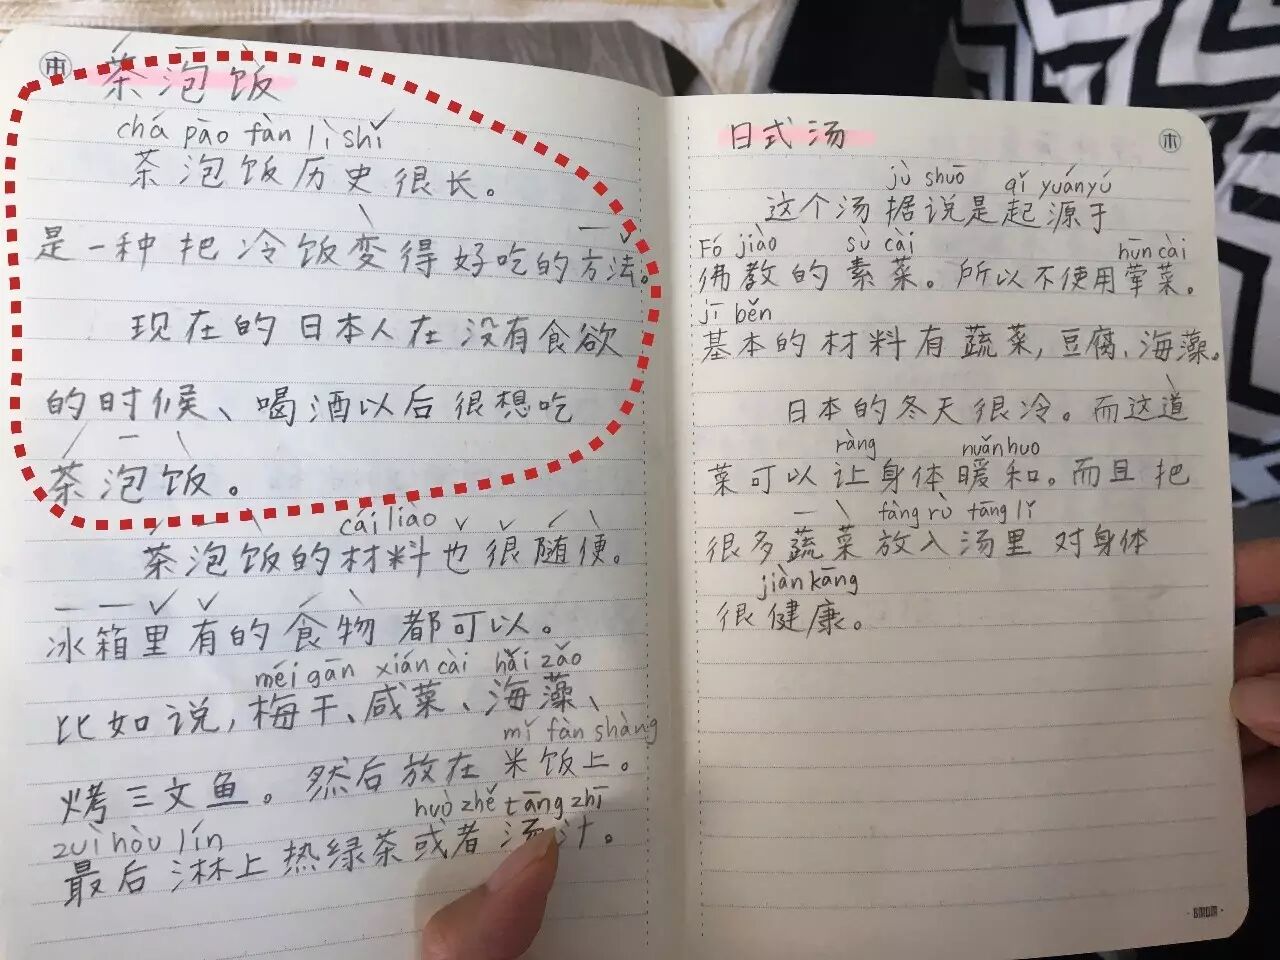 茶泡饭
chá pào fàn lì shǐ
茶泡饭历史很长。
是一种把冷饭变得好吃的方法。
现在的日本人在没有食欲
的时候、喝酒以后很想吃
茶泡饭。
cái liào
茶泡饭的材料也很随便。
冰箱里有的食物都可以。
méi gān xián cài hǎi zǎo
比如说，梅干、咸菜、海藻、
mǐ fàn shàng
烤三文鱼。然后放在米饭上。
zuì hòu lín huò zhě tāng zhī
最后淋上热绿茶或者汤汁。
日式汤
jù shuō qǐ yuán yú
这个汤据说是起源于
Fó jiào sù cài hūn cài
佛教的素菜。所以不使用荤菜。
jī běn
基本的材料有蔬菜，豆腐、海藻。
日本的冬天很冷。而这道
ràng nuǎn huo
菜可以让身体暖和。而且把
fàng rù tāng lǐ
很多蔬菜放入汤里对身体
jiàn kāng
很健康。